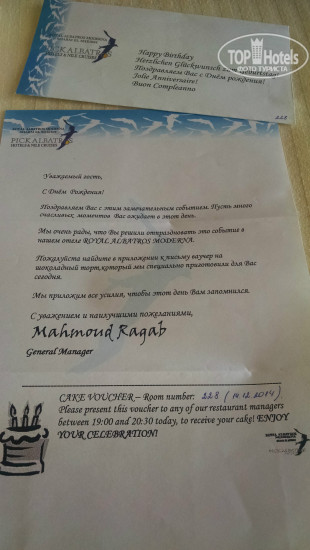 Happy Birthday
Herzlichen Glückwunsch zum Geburtstag
Поздравляем Вас с Днём рождения!
Jolie Anniversaire!
Buon Compleanno
TopHotels
ФОТО ТУРИСТА
228
PICK ALBATROS
HOTELS & NILE CRUISES
ROYAL ALBATROS MODERNA
PICK ALBATROS
HOTELS & NILE CRUISES
Уважаемый гость,
С Днём Рождения!
Поздравляем Вас с этим замечательным событием. Пусть много
счастливых моментов Вас ожидает в этот день.
Мы очень рады, что Вы решили отпраздновать это событие в
нашем отеле ROYAL ALBATROS MODERNA.
Пожалуйста найдите в приложении к письму ваучер на
шоколадный торт, который мы специально приготовили для Вас
сегодня.
Мы приложим все усилия, чтобы этот день Вам запомнился.
С уважением и наилучшими пожеланиями,
Mahmoud Ragab
General Manager
CAKE VOUCHER – Room number: 228 (14.12.2014)
Please present this voucher to any of our restaurant managers
between 19:00 and 20:30 today, to receive your cake! ENJOY
YOUR CELEBRATION!